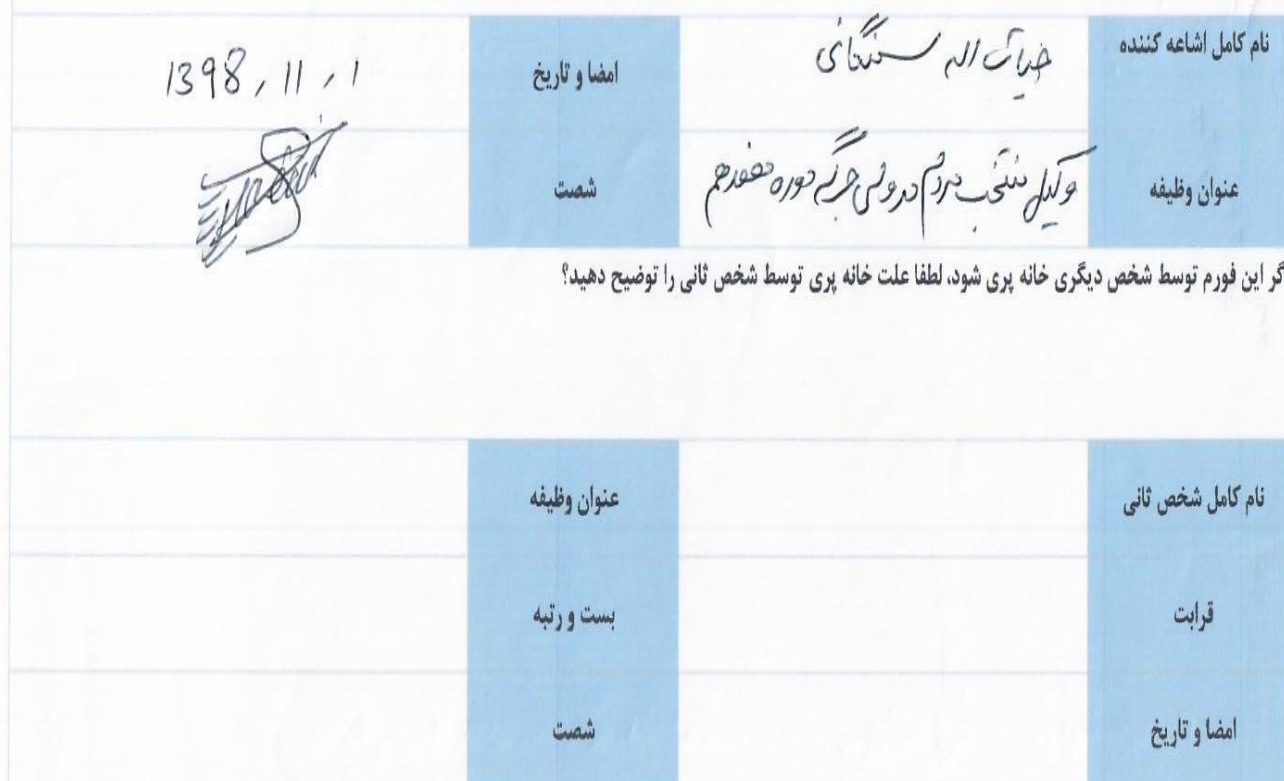 نام کامل اشاعه کننده
ضیأت اله سنگانی
امضا و تاریخ
1398 / 11 / 1
عنوان وظیفه
وکیل منتخب مردم در ولسی جرگه دوره هفدهم
شصت
گر این فورم توسط شخص دیگری خانه پری شود، لطفا علت خانه پری توسط شخص ثانی را توضیح دهید؟
نام کامل شخص ثانی
عنوان وظیفه
قرابت
بست و رتبه
امضا و تاریخ
شصت